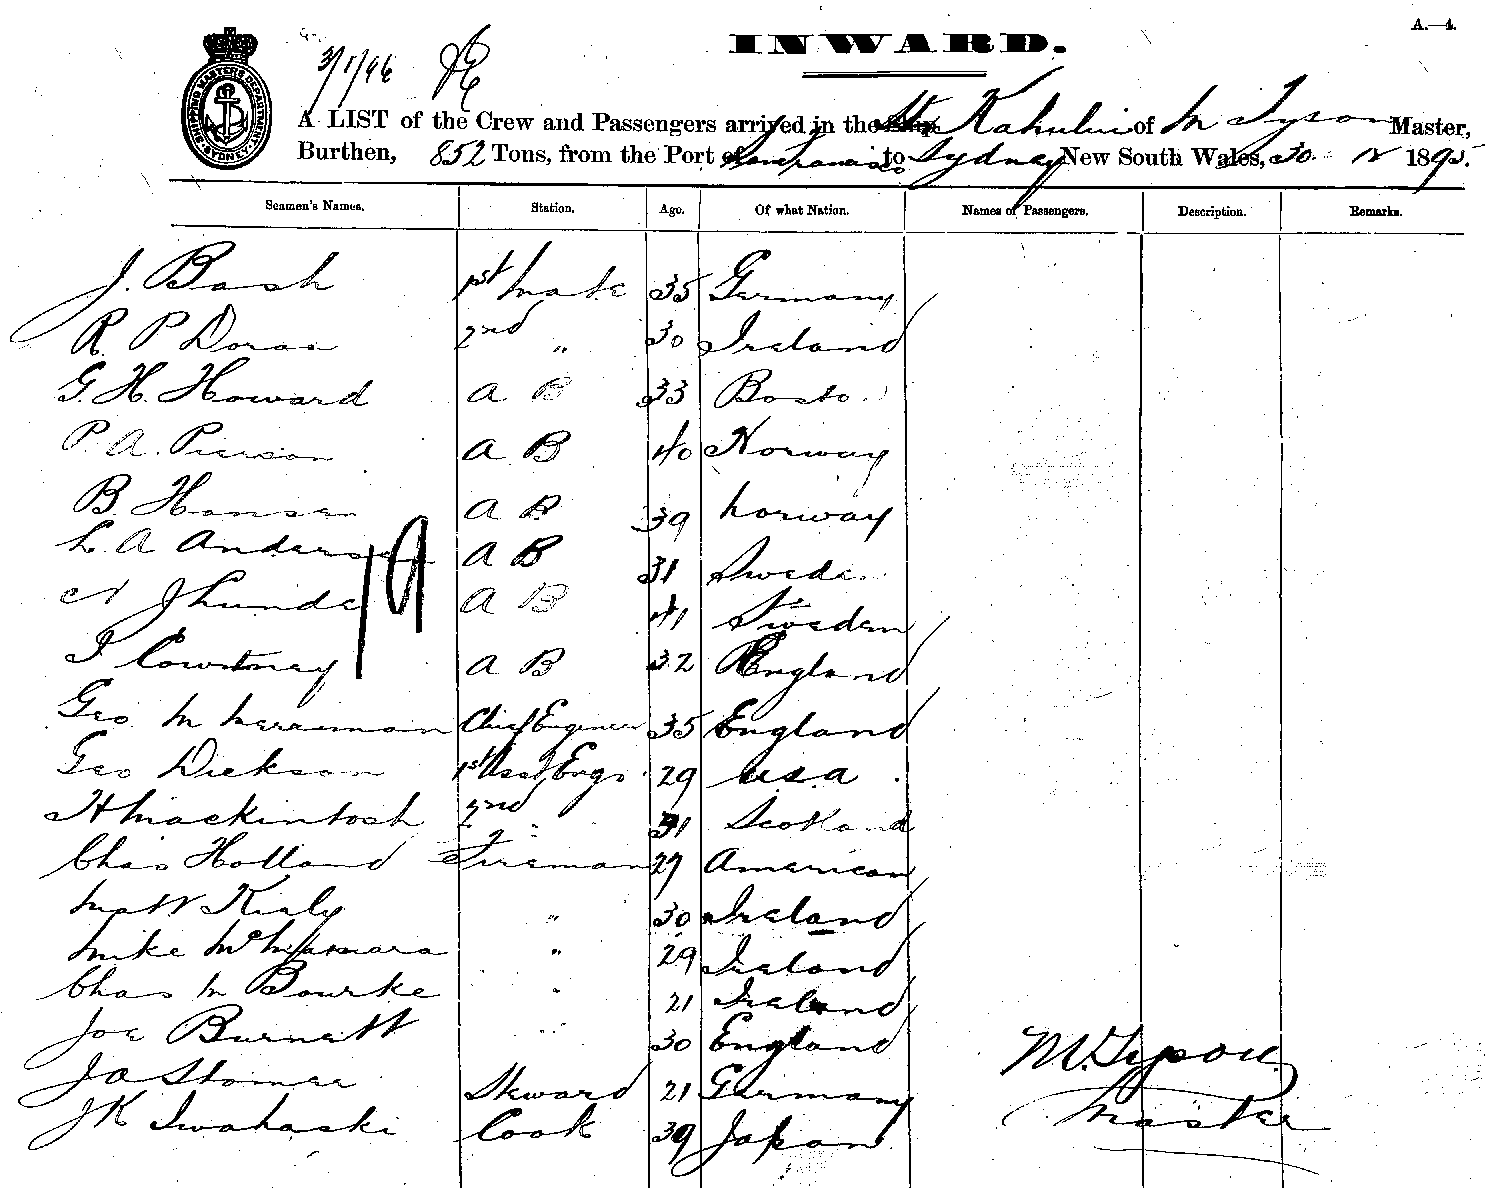 A.—4.
INWARD.
3/1/96
SHIPPING MASTER'S DEPARTMENT SYDNEY
A LIST of the Crew and Passengers arrived in the Str Kahului of M Tyson Master,
Burthen, 852 Tons, from the Port of San Francisco to Sydney New South Wales, 30 12 1895.
Seamen's Names. Station. Age. Of what Nation. Names of Passengers. Description. Remarks.
J. Bash 1st Mate 35 Germany
R. P Doran 2nd " 30 Ireland
G. H. Howard A B 33 Boston
P. A. Pierson A B 40 Norway
B. Hansen A B 39 Norway
L. A Anderson A B 31 Sweden
A J Lunde A B 41 Sweden
19
J Courtney A B 32 England
Geo M Merriman Chief Engineer 35 England
Geo Dickson 1st Asst Engr 29 U.S.A.
H Mackintosh 2nd " 31 Scotland
Chas Holland Fireman 27 American
Matt Kiely " 30 Ireland
Mike McNamara " 29 Ireland
Chas M Bourke " 21 Ireland
Joe Burnett " 30 England
J A Stomee Steward 21 Germany
J K Iwahaski Cook 39 Japan
M. Tyson
Master